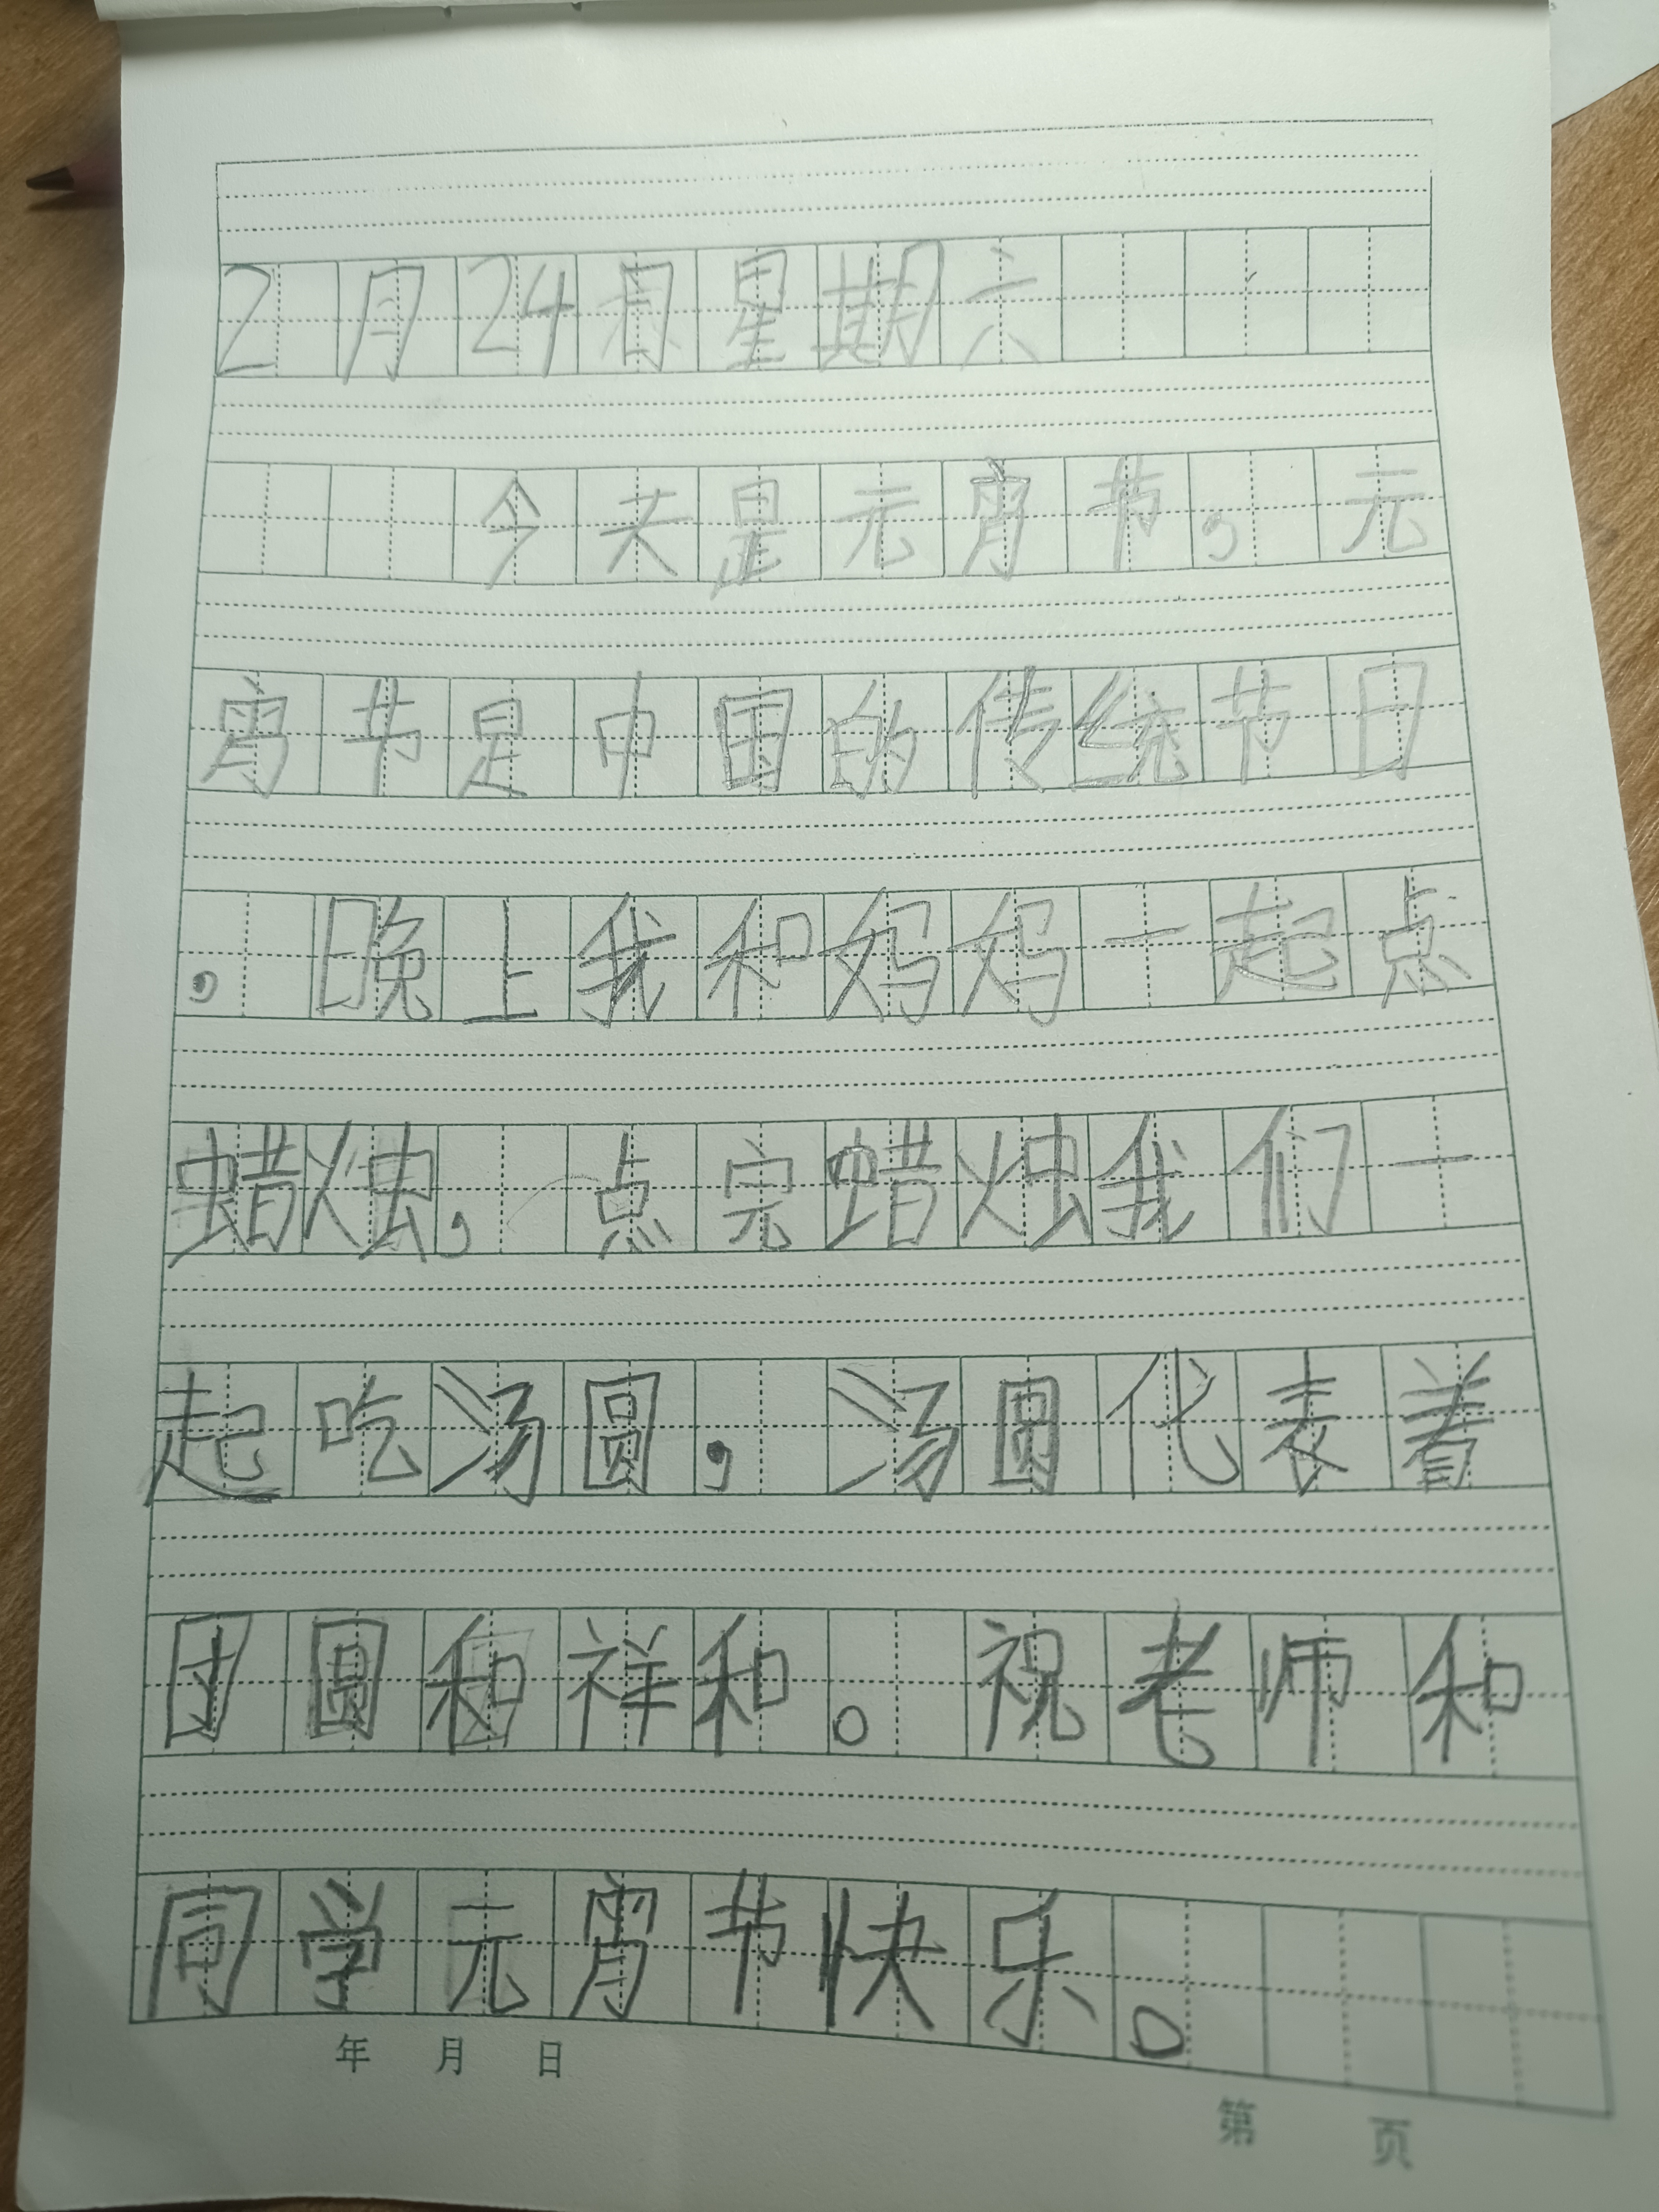 2月24日星期六
今天是元宵节，元
宵节是中国的传统节日
，晚上我和妈妈一起点
蜡烛，点完蜡烛我们一
起吃汤圆，汤圆代表着
团圆和祥和。祝老师和
同学元宵节快乐。
年 月 日
第 页